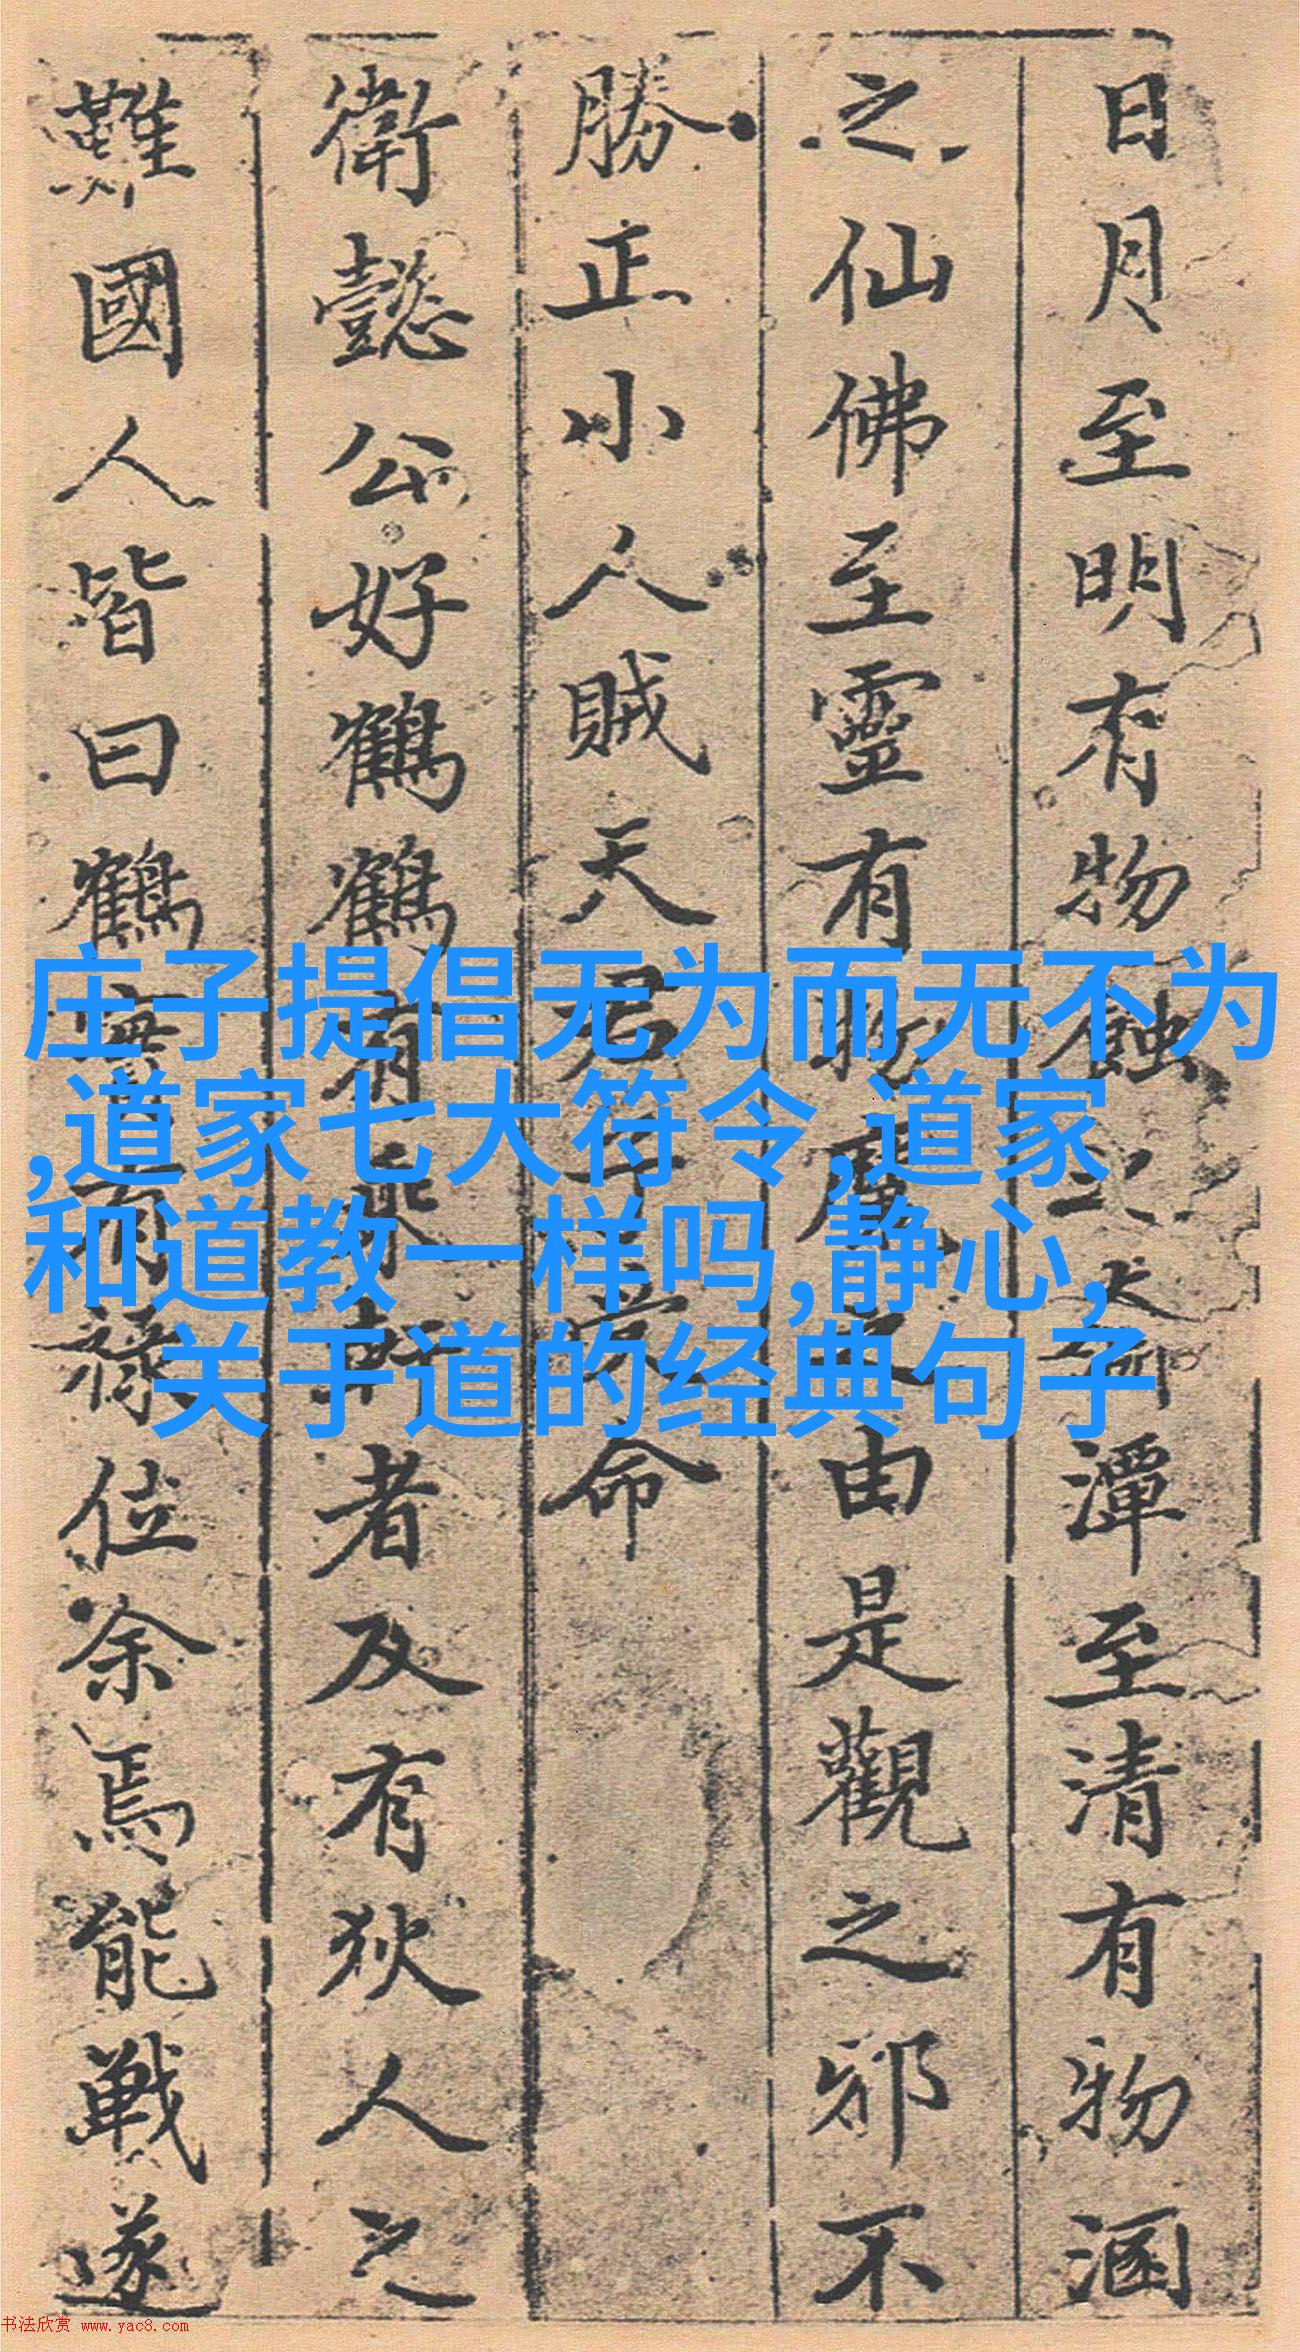 日月至明有物蝕之大爾潭至清有物溷
之仙佛至靈有
由是觀之邪不
勝正小人賊天君
命
衛懿公好鶴鶴有乘軒者及有狄人之
難國人皆曰鶴實有祿位余焉能戰遂
庄子提倡无为而无不为
,道家七大符令,道家
和道教一样吗,静心,
关于道的经典句子
书法欣赏 www.yac8.com